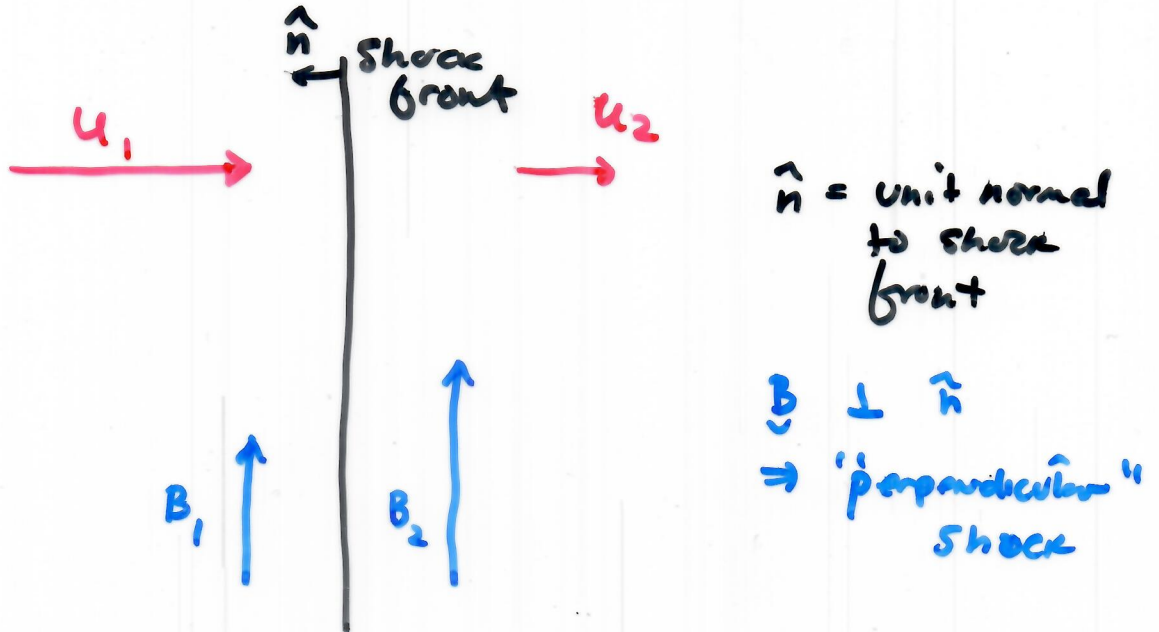 n̂
Shock
front
u₁
u₂
n̂ = unit normal
to shock
front
B₁
B₂
B ⊥ n̂
⇒ "perpendicular"
shock